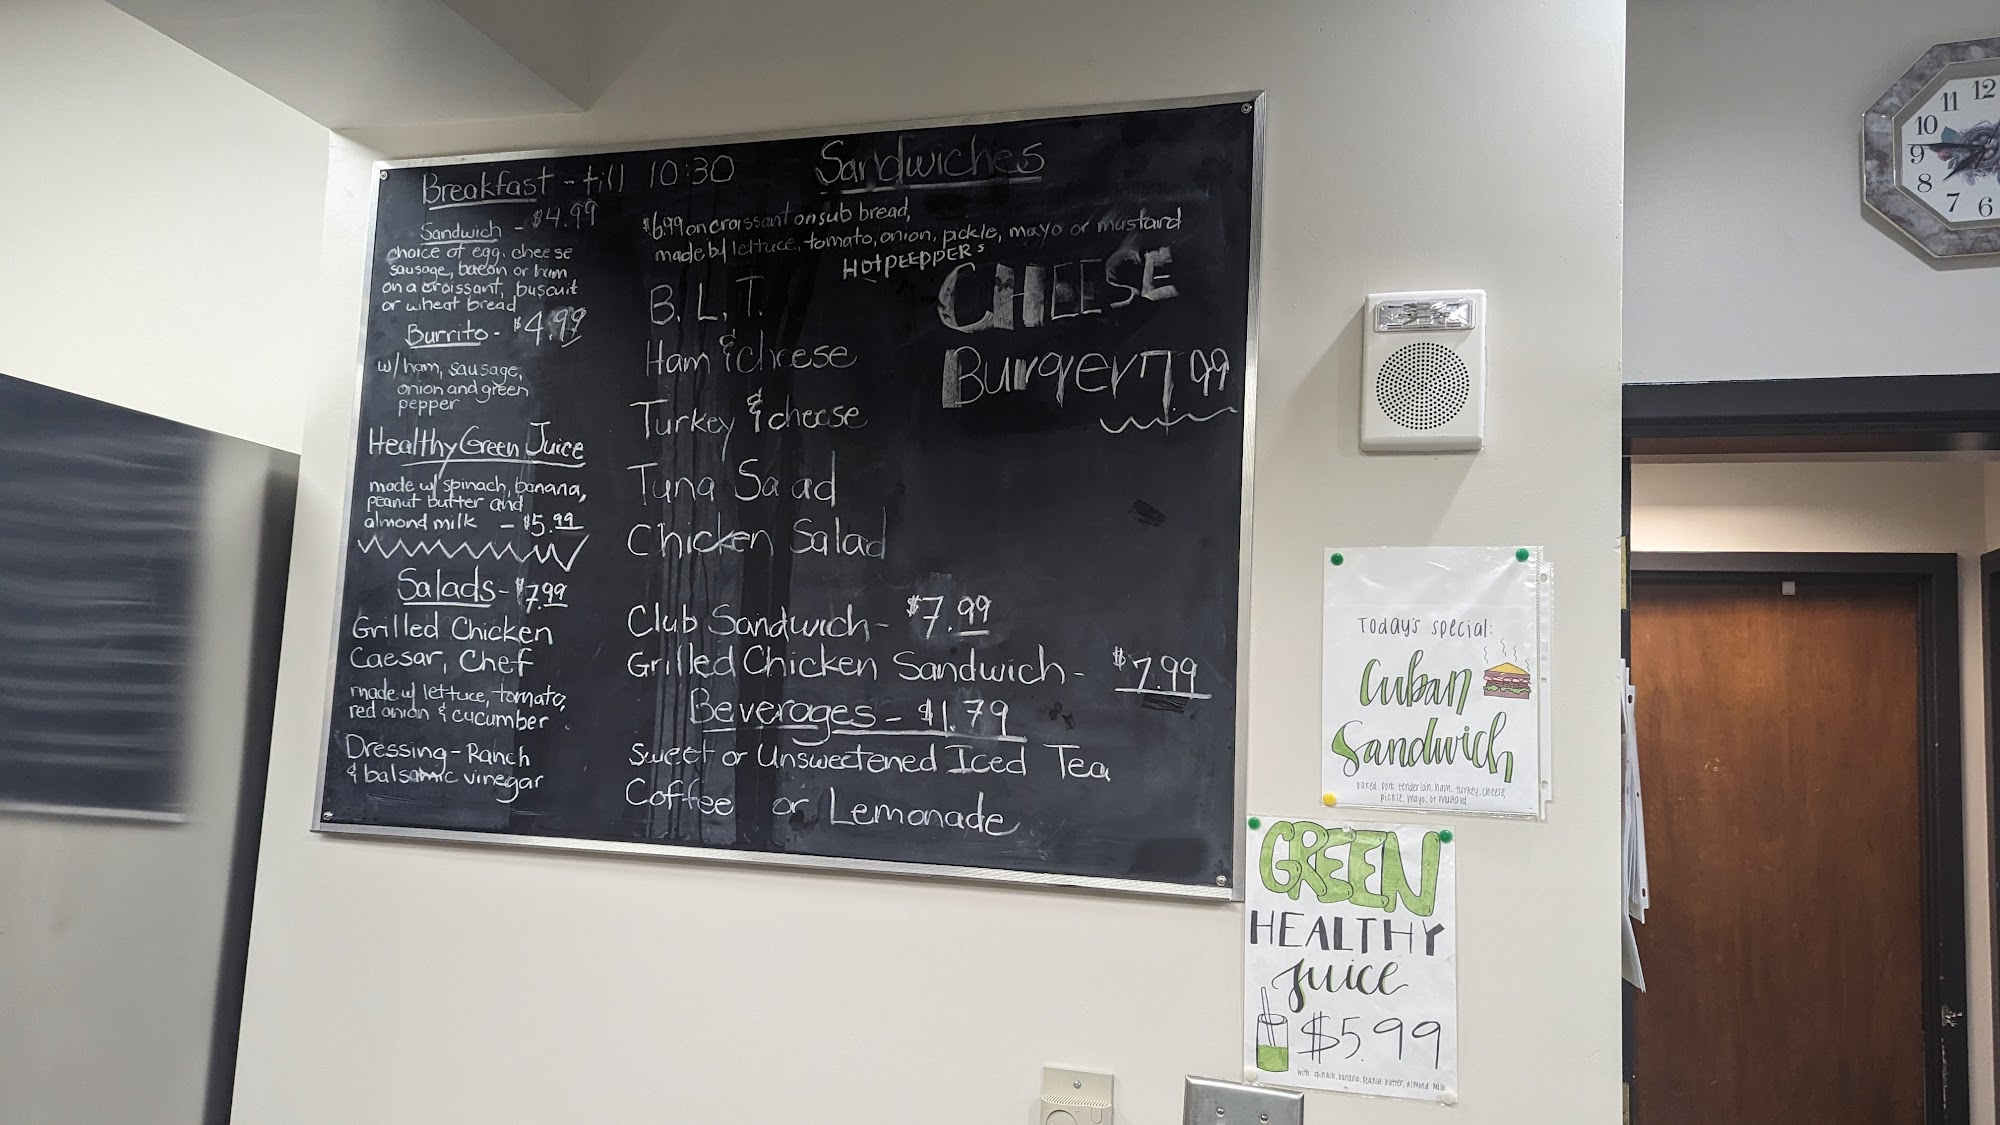 Breakfast - till 10:30
Sandwich - $4.99
choice of egg, cheese
sausage, bacon or ham
on a croissant, buscuit
or wheat bread
Burrito - $4.99
w/ ham, sausage,
onion and green
pepper
Healthy Green Juice
made w/ spinach, banana,
peanut butter and
almond milk - $5.99
Salads - $7.99
Grilled Chicken
Caesar, Chef
made w/ lettuce, tomato,
red onion & cucumber
Dressing - Ranch
& balsamic vinegar
Sandwiches
$6.99 on croissant on sub bread,
made by lettuce, tomato, onion, pickle, mayo or mustard
HOTPEEPPERs
B.L.T.
Ham & cheese
Turkey & cheese
Tuna Sa ad
Chicken Salad
CHEESE
Burger 7.99
Club Sandwich - $7.99
Grilled Chicken Sandwich - $7.99
Beverages - $1.79
Sweet or Unsweetened Iced Tea
Coffee or Lemonade
Today's special:
Cuban
Sandwich
baked pork tenderloin, ham, turkey, cheese,
pickle, mayo, or mustard
GREEN
HEALTHY
juice
$5.99
with spinach, banana, peanut butter, almond milk
12
11
10
9
8
7
6